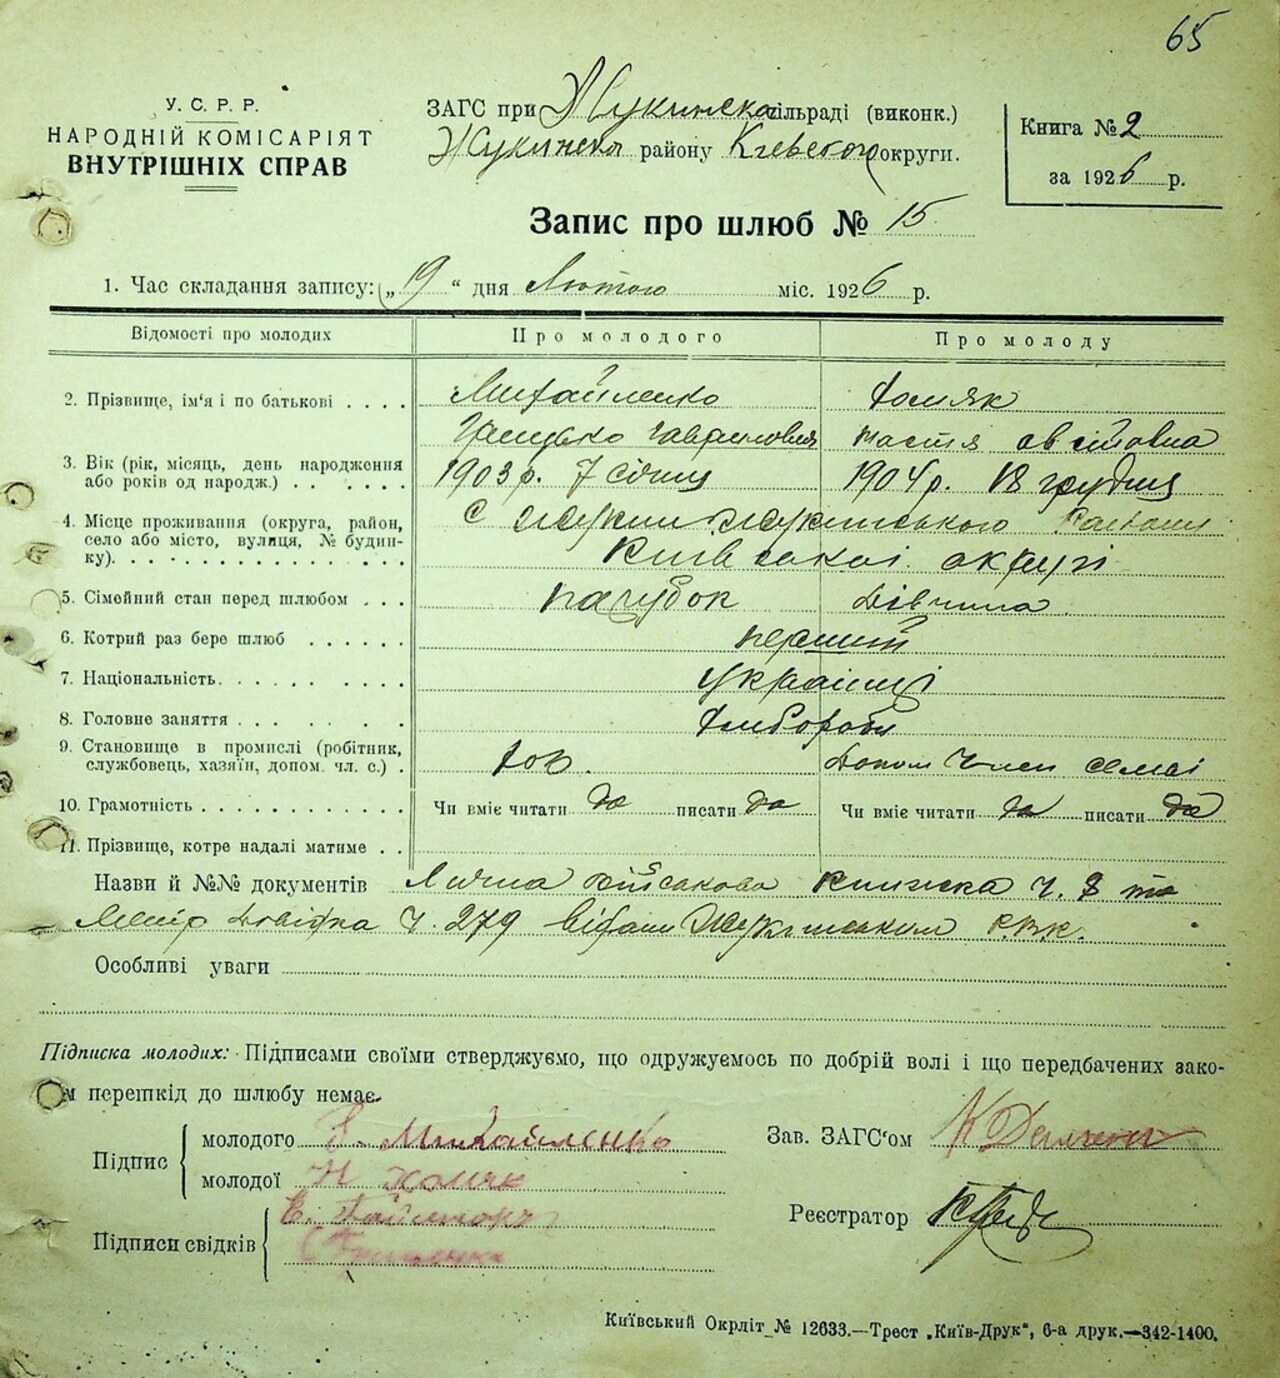 65
У. С. Р. Р.
НАРОДНІЙ КОМІСАРІЯТ
ВНУТРІШНІХ СПРАВ
ЗАГС при Жукинска сільраді (виконк.)
Жукинска району Киевского округи.
Книга № 2
за 1926 р.
Запис про шлюб № 15
1. Час складання запису: „19“ дня Лютого міс. 1926 р.
Відомості про молодих Про молодого Про молоду
2. Прізвище, ім'я і по батькові . . . . Михайленко Хомяк
Гавриловия Настя
3. Вік (рік, місяць, день народження 1903 р. 7 січня 1904 р. 18 грудня
або років од народж.) . . . . . .
4. Місце проживання (округа, район, с Жукин Жукинського
село або місто, вулиця, № будин-
ку). . . . . . . . . . . . . . Київської округі
5. Сімейний стан перед шлюбом . . . парубок дівчина
6. Котрий раз бере шлюб . . . . . . перший
7. Національність. . . . . . . . . . українці
8. Головне заняття . . . . . . . . Хлібороби
9. Становище в промислі (робітник,
службовець, хазяїн, допом. чл. с.) . Допом Член семьі
10. Грамотність . . . . . . . . . . . Чи вміє читати да писати да Чи вміє читати да писати да
11. Прізвище, котре надалі матиме . .
Назви й №№ документів Лична військова книжка ч. 8 та
довідка ч. 279 видані Жукинським Р.В.К.
Особливі уваги
Підписка молодих: Підписами своїми стверджуємо, що одружуємось по добрій волі і що передбачених зако-
м перешкід до шлюбу немає.
Підпис
молодого Михайленко
молодої Н Хомяк
Зав. ЗАГС'ом
Підписи свідків
Реєстратор
Київський Окрліт № 12633.—Трест „Київ-Друк“, 6-а друк.—342-1400.